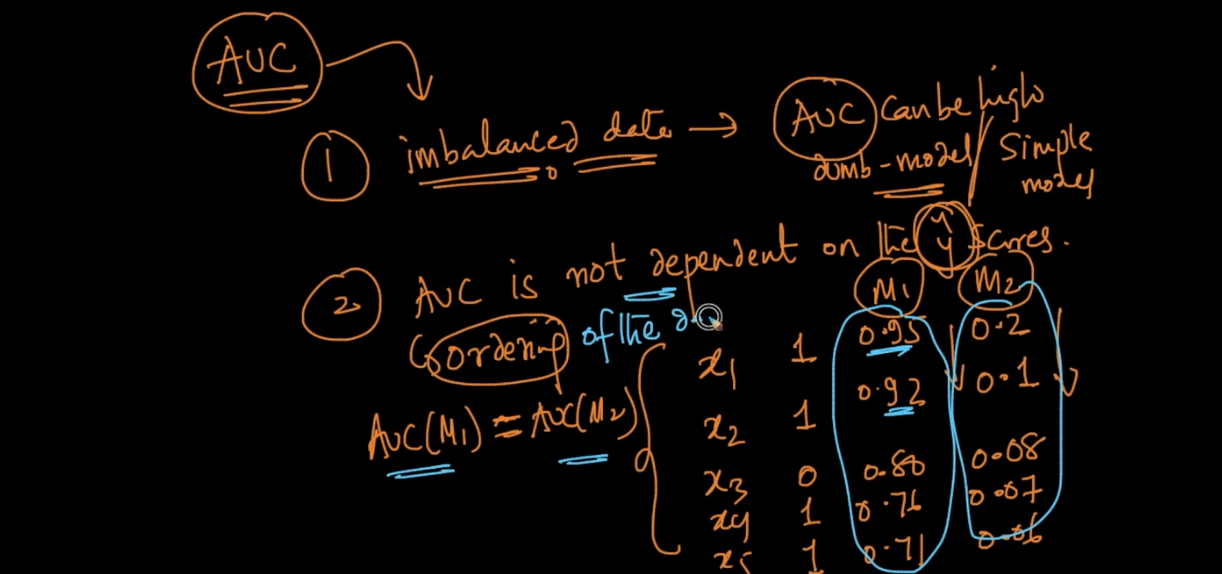 AUC
1 imbalanced data → AUC can be high
dumb-model / simple
model
2 AUC is not dependent on the ŷ scores.
ordering of the
M1 M2
AUC(M1) = AUC(M2)
x1 1 0.95 0.2
x2 1 0.92 0.1
x3 0 0.80 0.08
x4 1 0.76 0.07
x5 1 0.71 0.06